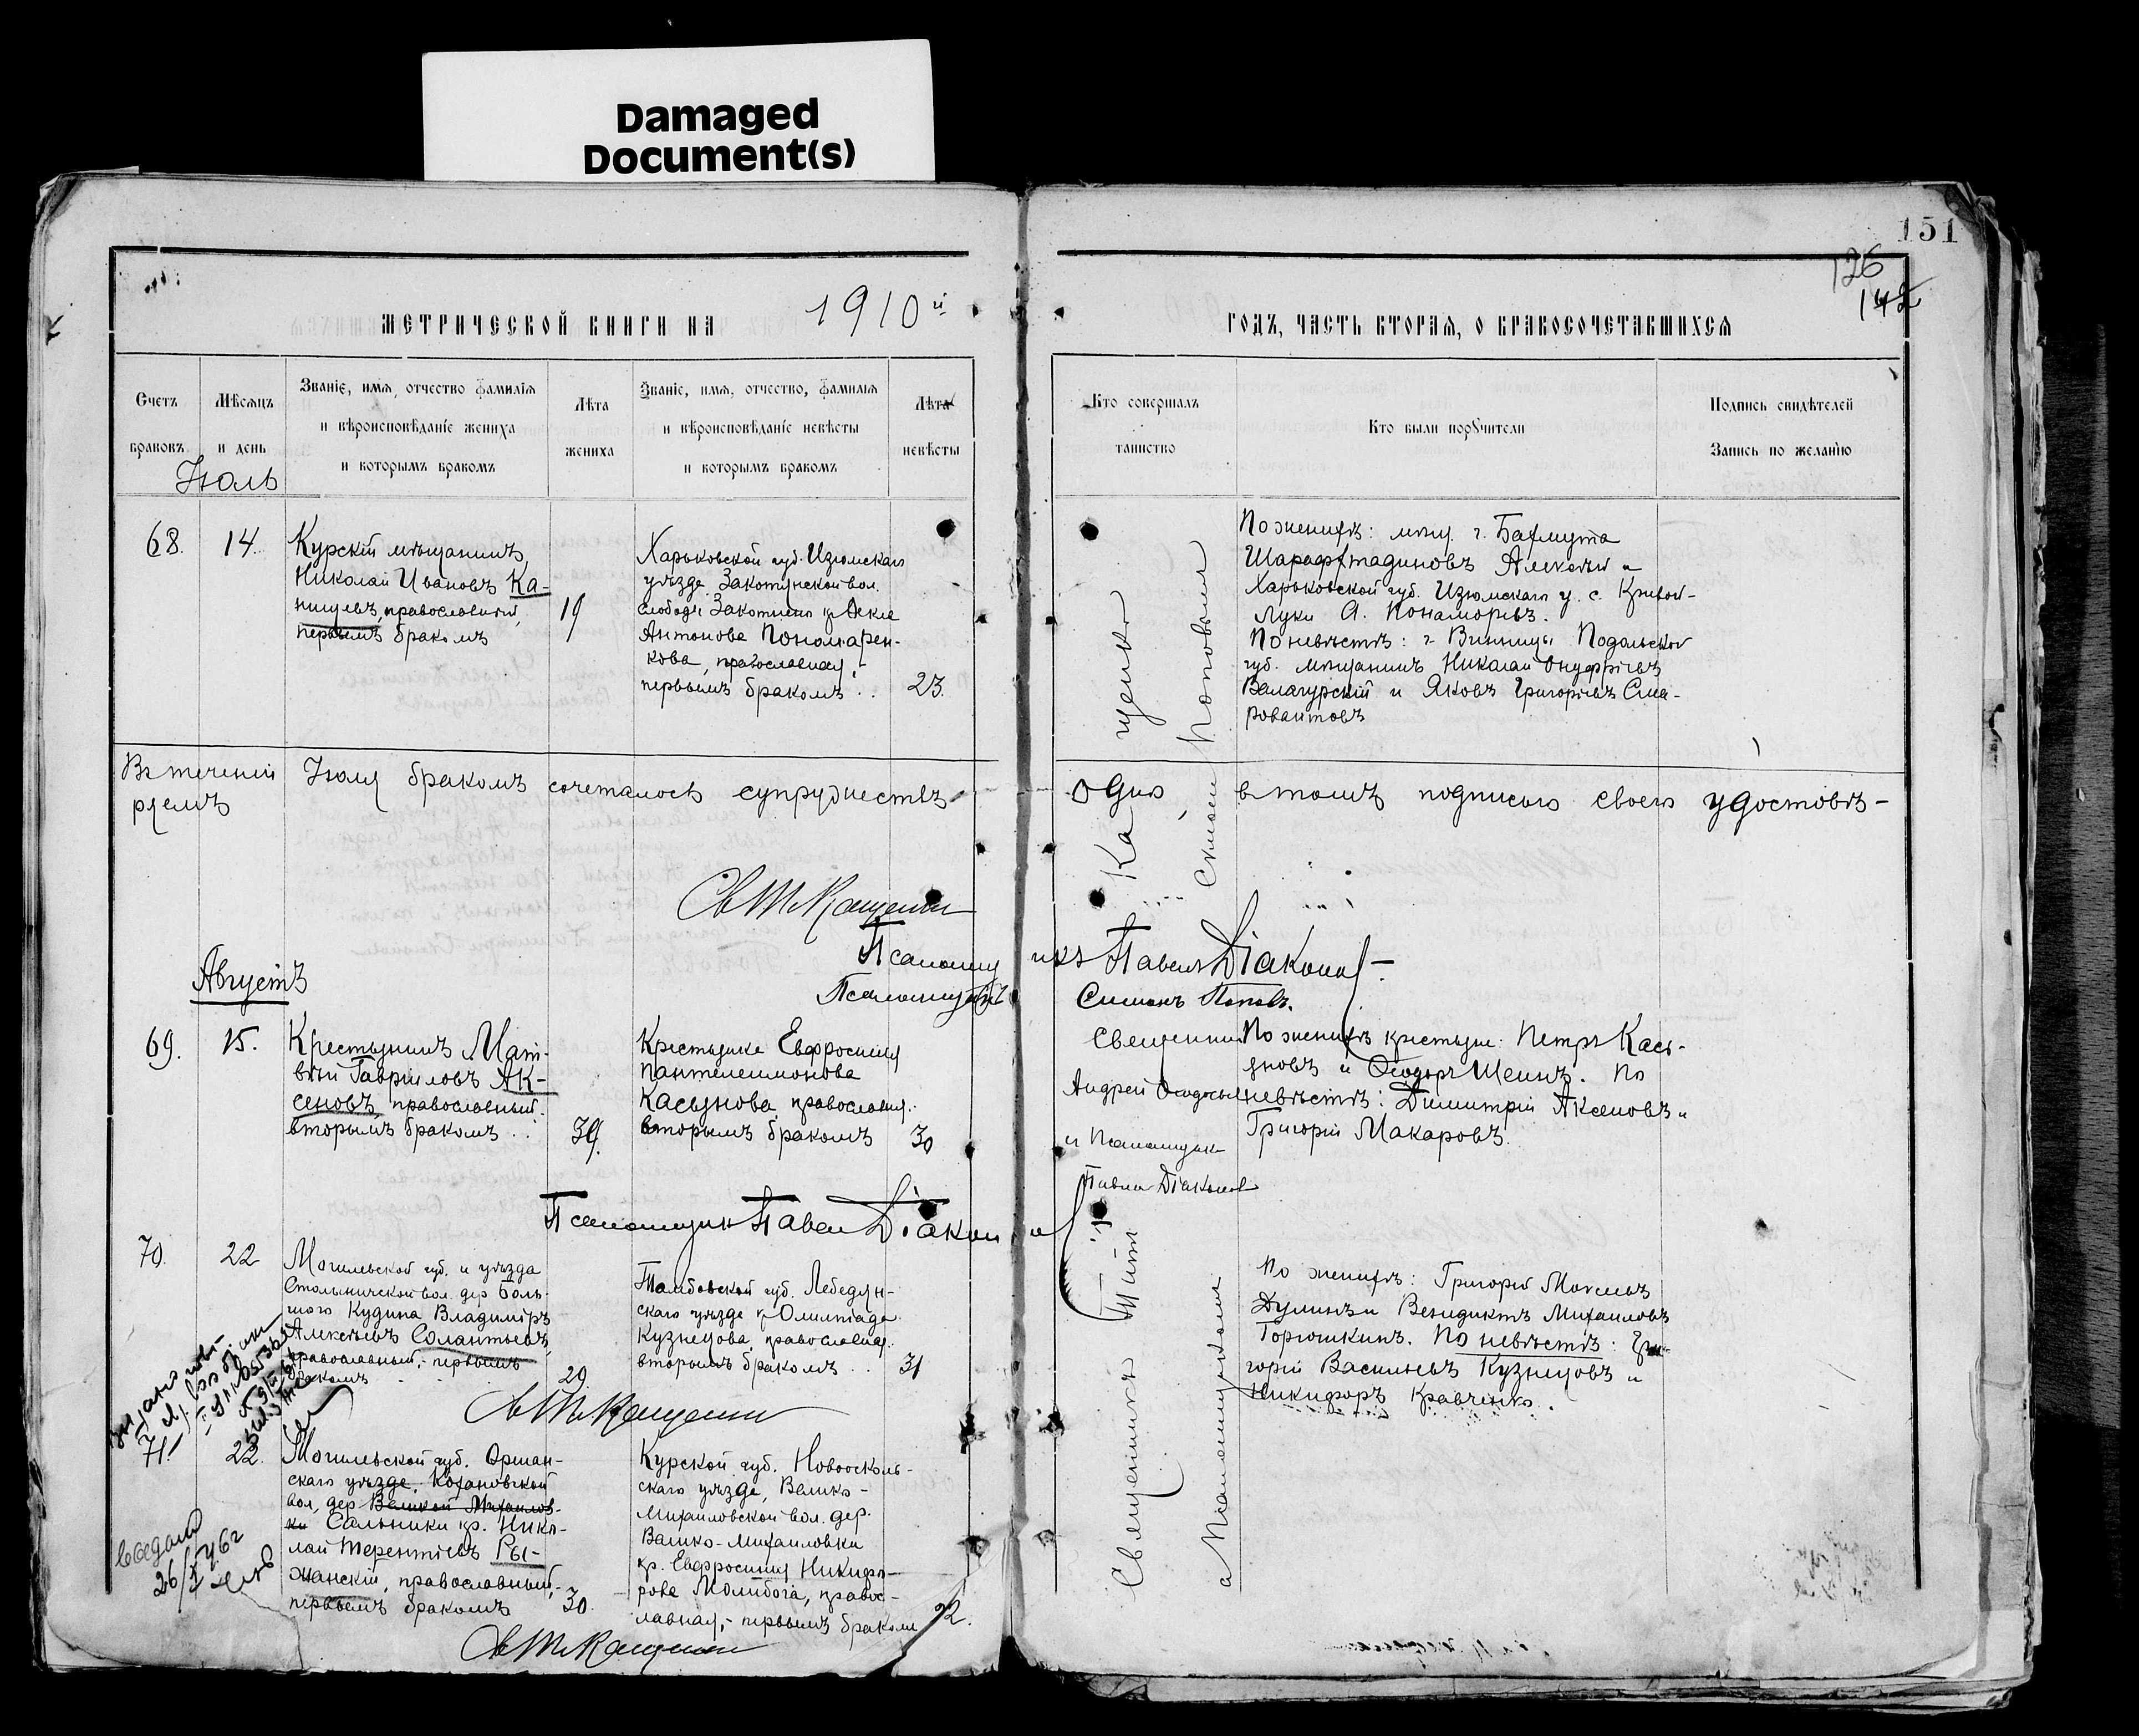 Damaged
Document(s)
151
126
142
МЕТРИЧЕСКОЙ КНИГИ НА 1910й
ГОДЪ, ЧАСТЬ ВТОРАЯ, О БРАКОСОЧЕТАВШИХСЯ
Счетъ
браковъ
Мѣсяцъ
и день
Званіе, имя, отчество фамилія
и вѣроисповѣданіе жениха
и которымъ бракомъ
Лѣта
жениха
Званіе, имя, отчество, фамилія
и вѣроисповѣданіе невѣсты
и которымъ бракомъ
Лѣта
невѣсты
Кто совершалъ
таинство
Кто были поручители
Подпись свидѣтелей
Запись по желанію
Іюль
68.
14.
Курскій мѣщанинъ
Николай Ивановъ Ка-
православный,
первымъ бракомъ
19
Харьковской губ. Изюмскаго
уѣзда Закотнской вол.
слободы Закотнена кр Фекла
Антонова Пономарен-
кова, православная
первымъ бракомъ
23.
По женихѣ: мѣщ. г. Бахмута
Алексѣй и
Харьковской губ. Изюмскаго у. с. Кривой-
Луки А. Понаморевъ.
По невѣстѣ: г. Винницы Подольской
губ. мѣщанинъ Николай Онуфріевъ
Балагурскій и Яковъ Григорьевъ
Въ теченіи Іюля бракомъ сочеталось супружествъ одно въ томъ подписью своею удостовѣ-
ряемъ
Св Т Кащенко
Псаломщикъ Павелъ Діаконов
Псаломщикъ Симеонъ Поповъ.
Августъ
69.
15.
Крестьянинъ Мат-
вѣй Гавриловъ Ак-
сеновъ, православный.
вторымъ бракомъ
39.
Крестьянка Евфросинія
Пантелеимонова
Касьянова, православная.
вторымъ бракомъ
30
Священник
Андрей
и Псаломщик
Павел Діаконов
По женихѣ крестьяне: Петръ Кась-
яновъ и Ѳеодоръ Шеинъ. По
невѣстѣ: Димитрій Аксеновъ и
Григорій Макаровъ.
Псаломщик Павел Діаконов
70.
22
Могилевской губ. и уѣзда
вол. дер Боль-
шого Кудина Владиміръ
Алексѣевъ
православный, первымъ
бракомъ
29
Тамбовской губ. Лебедян-
скаго уѣзда кр Олимпіада
Кузнецова, православная.
вторымъ бракомъ
31
По женихѣ: Григорій
Дулинъ и Венидиктъ Михаиловъ
Горюшкинъ. По невѣстѣ: Гри-
горій Васильевъ Кузнецовъ и
Никифоръ Кравченко.
Св Т Кащенко
71
22.
Могилевской губ. Оршан-
скаго уѣзда, Кохановской
вол, дер Великой Михайлов-
ки Сальники кр. Нико-
лай Терентіевъ Ры-
жанскій, православный,
первымъ бракомъ
30.
Курской губ. Новоосколь-
скаго уѣзда, Велико-
Михаиловской вол. дер.
Велико-Михаиловки
кр. Евфросинія Никифо-
рова Молибога, правос-
лавная, первымъ браком
22.
Священникъ Титъ Кащенко
и Псаломщик Симеон Поповъ
Св Т Кащенко